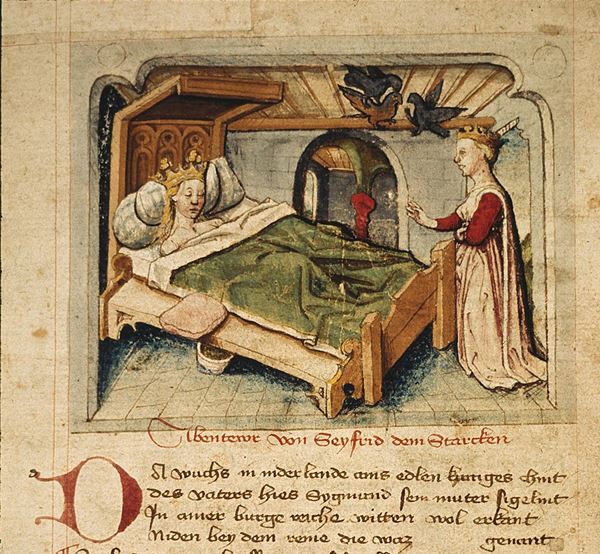 Abentewr von Seyfrid dem Starcken
DA wuchs in niderlande ains edlen kuniges chint
des vaters hies Sygmund sein muter sigelint
In ainer burge reiche witten wol erkant
Niden bey dem reine die waz genant